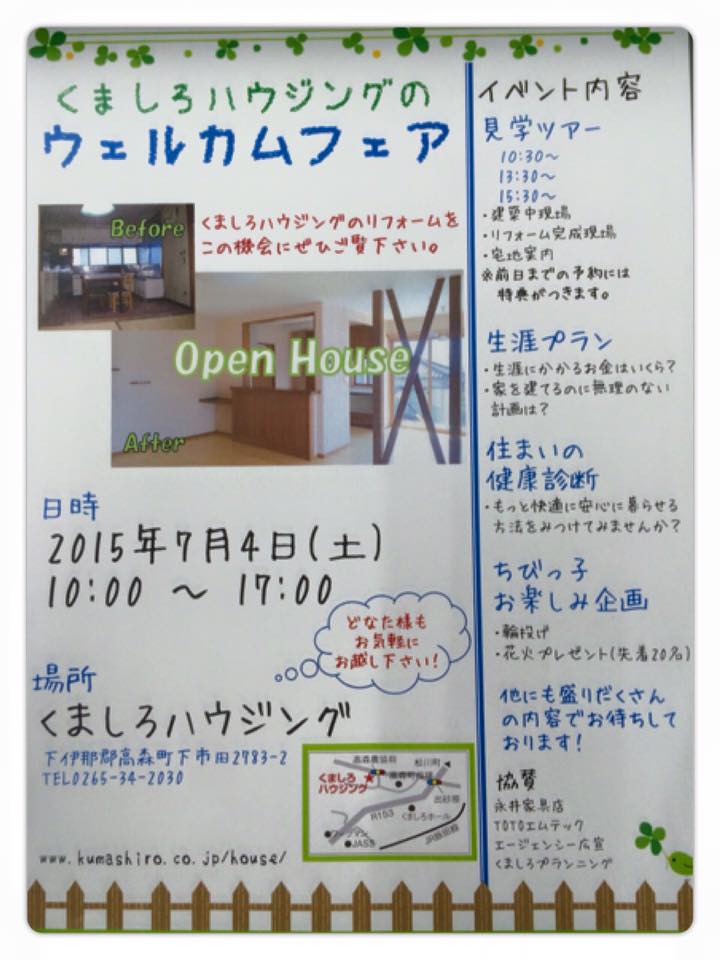 くましろハウジングの
ウェルカムフェア
Before
くましろハウジングのリフォームを
この機会にぜひご覧下さい。
Open House
After
日時
2015年7月4日(土)
10:00 ～ 17:00
どなた様も
お気軽に
お越し下さい!
場所
くましろハウジング
下伊那郡高森町下市田2783-2
TEL0265-34-2030
www.kumashiro.co.jp/house/
高森農協前
松川町
くましろ
ハウジング
高森町役場
出砂原
R153
くましろホール
JR飯田線
JASS
イベント内容
見学ツアー
10:30～
13:30～
15:30～
・建築中現場
・リフォーム完成現場
・宅地案内
※前日までの予約には
特典がつきます。
生涯プラン
・生涯にかかるお金はいくら?
・家を建てるのに無理のない
計画は?
住まいの
健康診断
・もっと快適に安心に暮らせる
方法をみつけてみませんか?
ちびっ子
お楽しみ企画
・輪投げ
・花火プレゼント(先着20名)
他にも盛りだくさん
の内容でお待ちして
おります!
協賛
永井家具店
TOTOエムテック
エージェンシー広宣
くましろプランニング